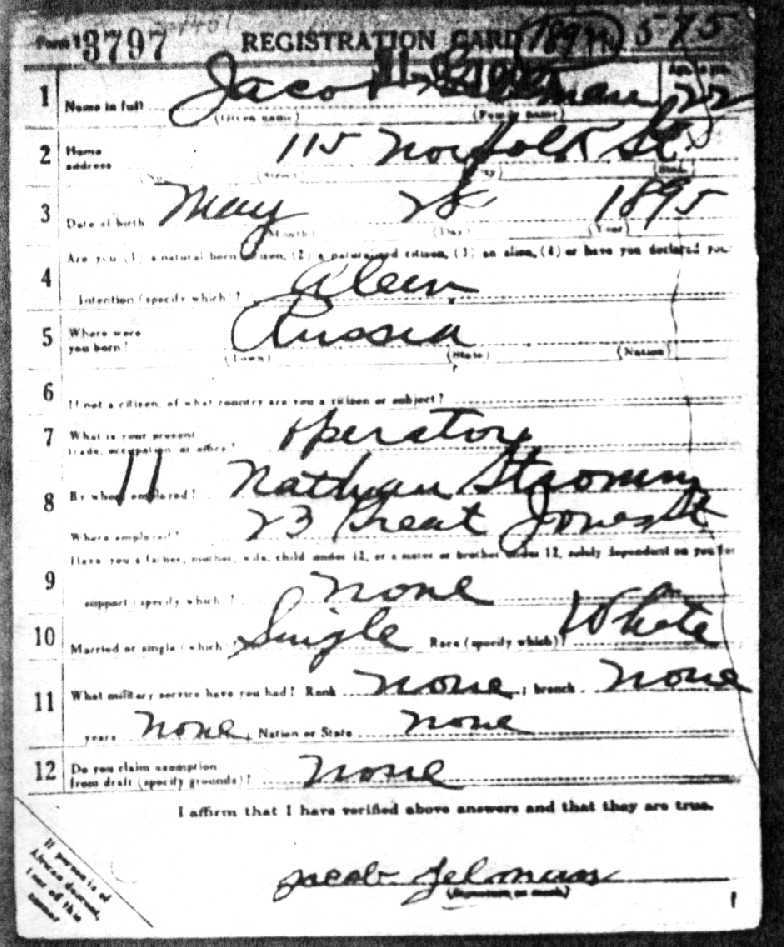 Form 1 3797 REGISTRATION CARD 5 75
1 Name in full Jacob man Age, in yrs. 22
(Given name) (Family name)
2 Home address 115 Norfolk St
(No.) (Street) (City) (State)
3 Date of birth May 28 1895
(Month) (Day) (Year)
Are you (1) a natural born citizen, (2) a naturalized citizen, (3) an alien, (4) or have you declared your
4 intention (specify which)? Alien
5 Where were you born? Russia
(Town) (State) (Nation)
6 If not a citizen, of what country are you a citizen or subject?
7 What is your present trade, occupation, or office? operator
8 By whom employed? Nathan Stromm
Where employed? 23 Great Jones St
Have you a father, mother, wife, child under 12, or a sister or brother under 12, solely dependent on you for
9 support (specify which)? none
10 Married or single (which)? Single Race (specify which)? White
11 What military service have you had? Rank none ; branch none
years none Nation or State none
12 Do you claim exemption from draft (specify grounds)? none
I affirm that I have verified above answers and that they are true.
Jacob Gelman
(Signature or mark)
If person is of
African descent,
tear off this
corner